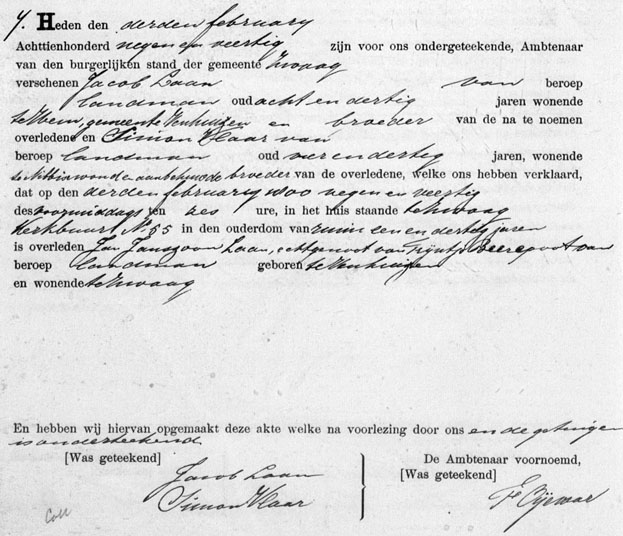 7. Heden den derden february
Achttienhonderd negen en veertig zijn voor ons ondergeteekende, Ambtenaar
van den burgerlijken stand der gemeente Zwaag
verschenen Jacob Laan van beroep
landman oud acht en dertig jaren wonende
te Wem, gemeente Venhuizen en broeder van de na te noemen
overledene en Simon Klaar van
beroep landman oud vier en dertig jaren, wonende
te broeder van de overledene, welke ons hebben verklaard,
dat op den derden february 1800 negen en veertig
des voormiddags ten zes ure, in het huis staande te Zwaag
Kerkbuurt No. 55 in den ouderdom van ruim een en dertig jaren
is overleden Jan Janszoon Laan, echtgenoot van Trijntje Beerepoot van
beroep landman geboren te Venhuizen
en wonende te Zwaag
En hebben wij hiervan opgemaakt deze akte welke na voorlezing door ons en de getuigen
is onderteekend.
[Was geteekend]
Jacob Laan
Simon Klaar
De Ambtenaar voornoemd,
[Was geteekend]
Coll